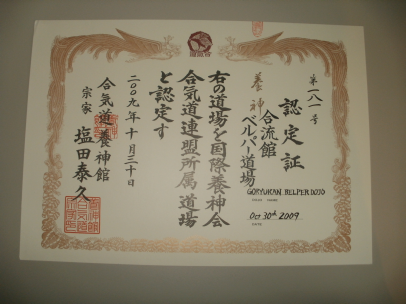 第一八一号
認定証
養神
合流館
ベルパー道場
GORYUKAN BELPER DOJO
Oct 30th 2009
DATE
右の道場を国際養神会
合気道連盟所属道場
と認定す
二〇〇九年十月三十日
合気道養神館
宗家 塩田泰久